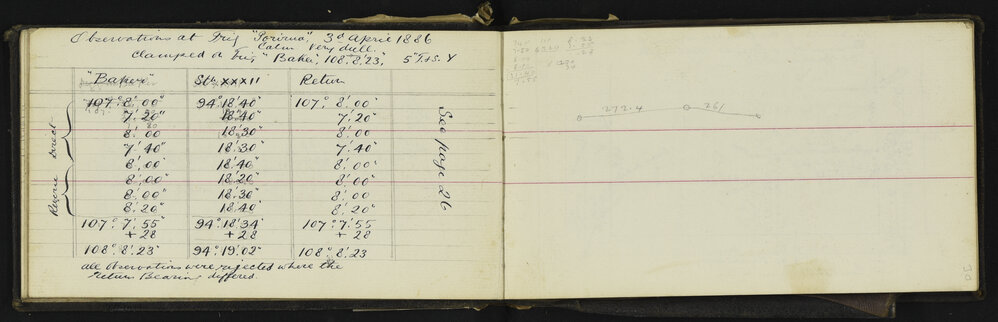 Observations at Trig "Porirua" 3d April 1886
Calm Very dull.
Clamped on Trig "Baker", 108°.8'.23",
"Baker" Stn XXXII Return
107°.8'.00" 94°.18'.40" 107°.8'.00"
7'.20" 18'.40" 7'.20
8'.00 18'.30" 8'.00
7'.40" 18'.30 7'.40"
8'.00 18'.40" 8'.00
8'.00" 18'.20" 8'.00"
8'.00 18'.30" 8'.00
8'.20" 18'.40 8'.20"
107°.7'.55" 94°.18'.34" 107°.7'.55
+28 +28 +28
108°.8'.23" 94°.19'.02" 108°.8'.23
Direct
Reverse
See page 26
all observations were rejected where the
return Bearing differed.
272.4 261
30